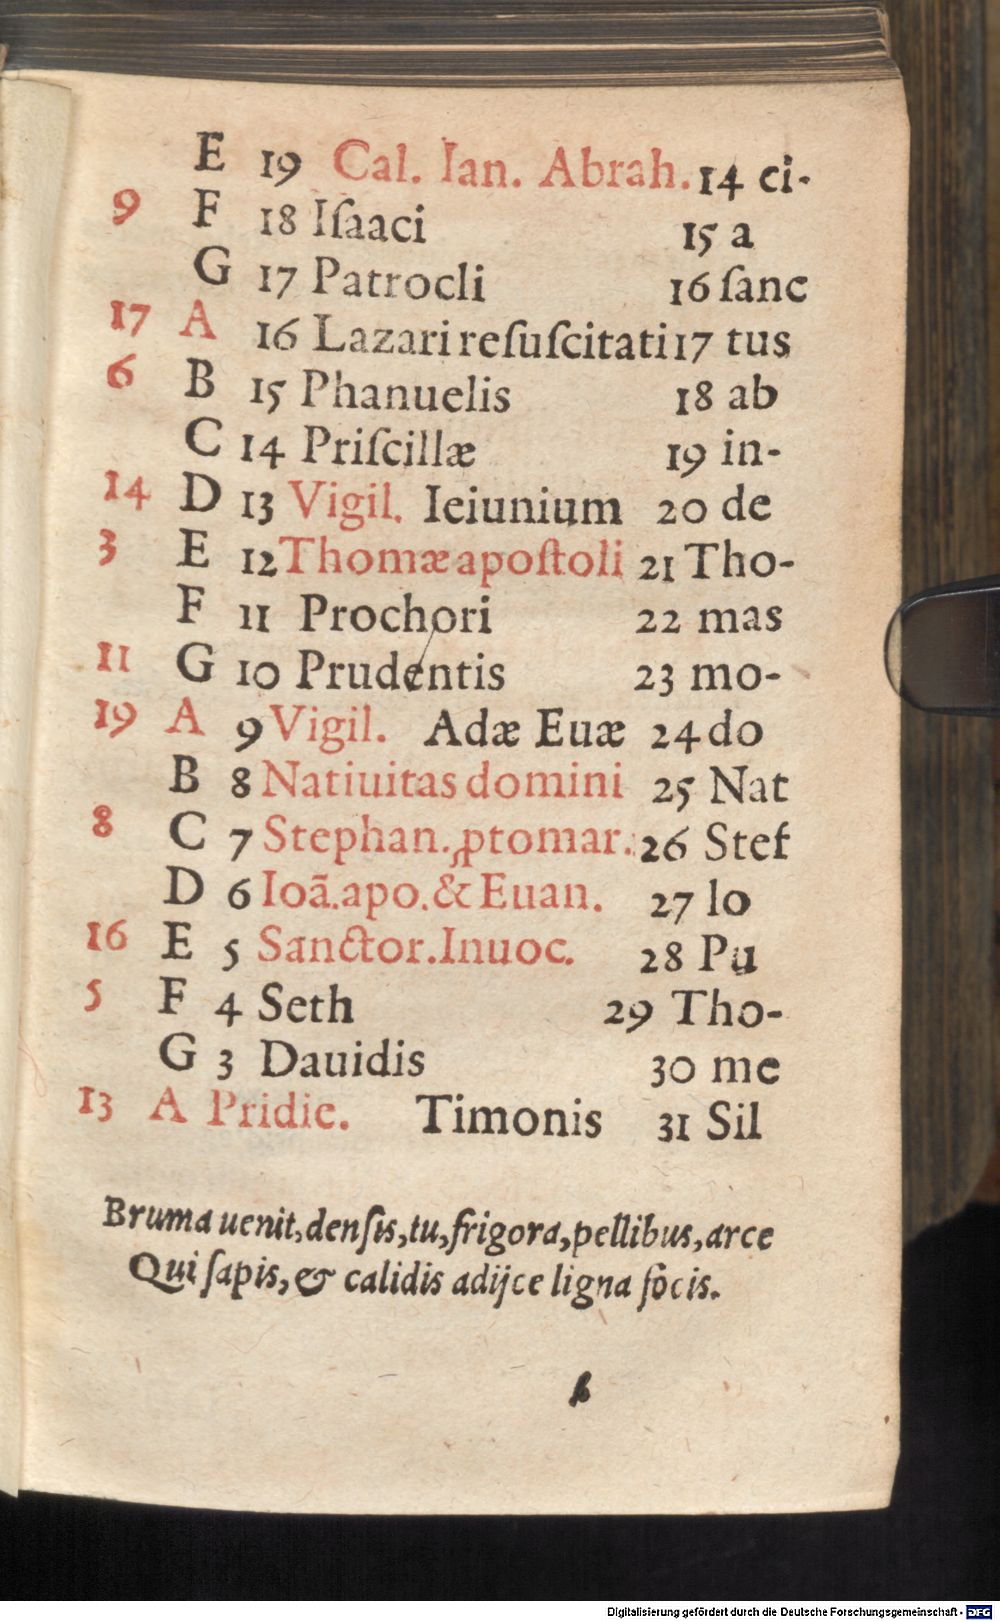 E 19 Cal. Ian. Abrah. 14 ci-
9 F 18 Iſaaci 15 a
G 17 Patrocli 16 ſanc
17 A 16 Lazari reſuſcitati 17 tus
6 B 15 Phanuelis 18 ab
C 14 Priſcillæ 19 in-
14 D 13 Vigil. Ieiunium 20 de
3 E 12 Thomæ apoſtoli 21 Tho-
F 11 Prochori 22 mas
11 G 10 Prudentis 23 mo-
19 A 9 Vigil. Adæ Euæ 24 do
B 8 Natiuitas domini 25 Nat
8 C 7 Stephan. ꝓtomar. 26 Stef
D 6 Ioã. apo. & Euan. 27 Io
16 E 5 Sanctor. Inuoc. 28 Pu
5 F 4 Seth 29 Tho-
G 3 Dauidis 30 me
13 A Pridie. Timonis 31 Sil
Bruma uenit, denſis, tu, frigora, pellibus, arce
Qui ſapis, & calidis adijce ligna focis.
b
Digitalisierung gefördert durch die Deutsche Forschungsgemeinschaft - DFG